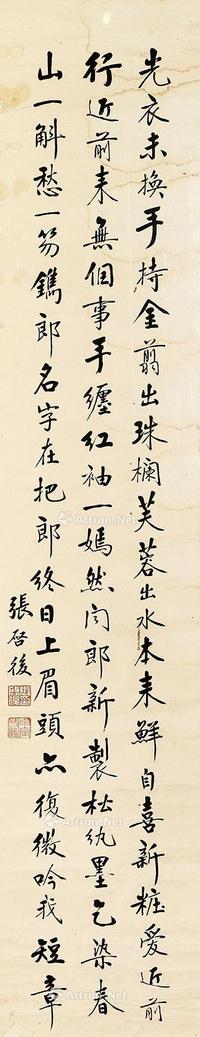 光衣未換手持金剪出珠欄芙蓉出水本来鮮自喜新粧愛近前
行近前来無個事手纏紅袖一嫣然问郎新製松紈墨乞染春
山一斛愁一笏鐫郎名字在把郎終日上眉頭亦復微吟我短章
張啓後